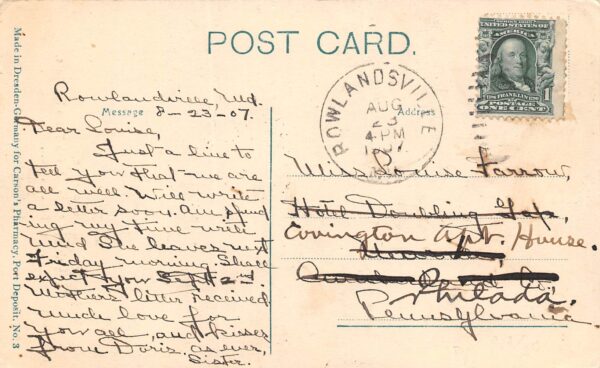 POST CARD.
Made in Dresden-Germany for Carson's Pharmacy, Port Deposit, No. 3
Message
Rowlandville, Md.
8-23-07.
Dear Louise,
Just a line to
tell you that we are
all well. Will write
a letter soon. Am spend
ing my time with
until She leaves next
Friday morning. Shall
expect you Sept 2nd.
Mothers letter received
much love for
you all, and kisses
from Doris, as ever,
Sister.
ROWLANDSVILLE
AUG
23
4 PM
1907
Address
SERIES 1902
UNITED STATES OF
AMERICA
FRANKLIN
POSTAGE
ONE CENT
1
Miss Louise Farrow,
Hotel Doubling Gap,
Covington Apt. House.
Philada.
Pennsylvania